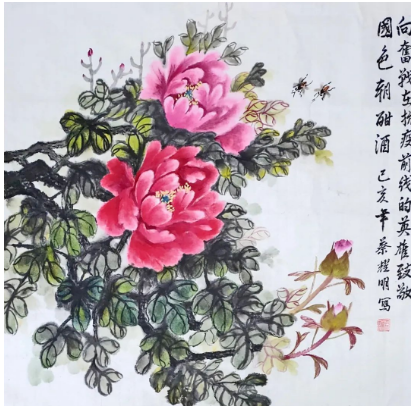 向奮战在抗疫前线的英雄致敬
國色朝酣酒 己亥年 蔡楷明寫